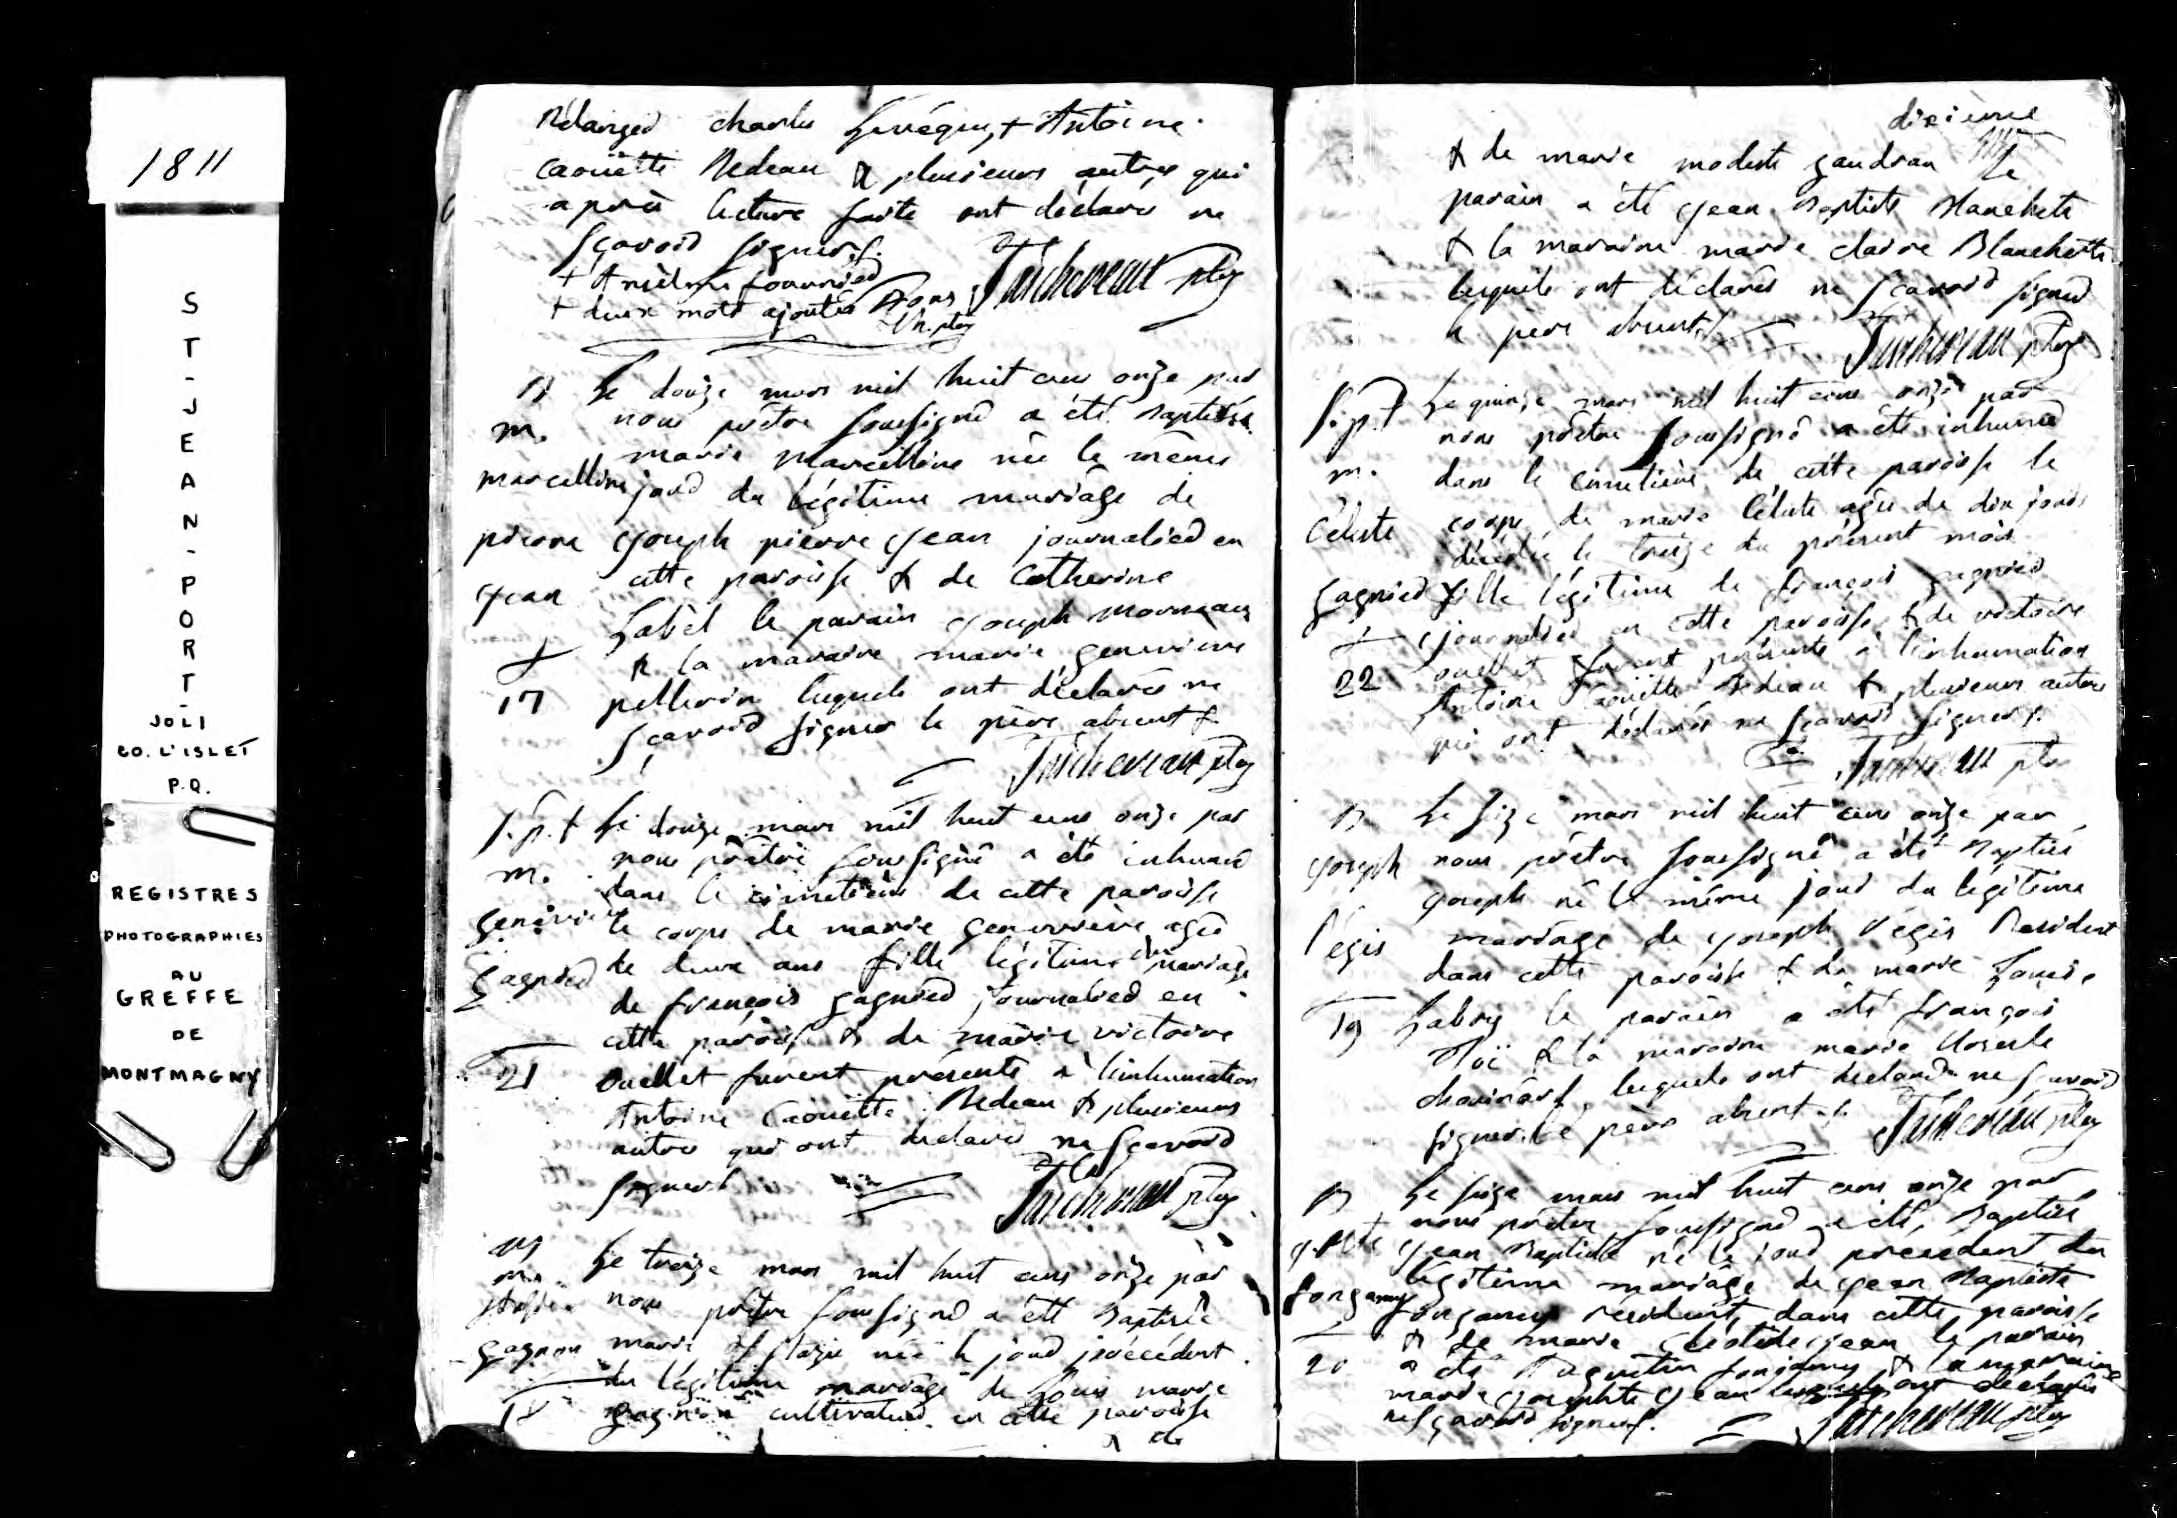 1811
ST-JEAN-PORT-
JOLI
CO. L'ISLET
P.Q.
REGISTRES
PHOTOGRAPHIES
AU
GREFFE
DE
MONTMAGNY
charles Levêque, + Antoine
caoüette Bedeau & plusieurs autres qui
après lecture faite ont déclaré ne
sçavoir signer
+ Anselme fournier
+ deux mots ajoutés
Taschereau ptre
B Le douze mars mil huit cens onze par
m. nous prêtre soussigné a été baptisée
marie Marcelline née le même
marcelline jour du légitime mariage de
pierre joseph pierre jean journalier en
jean cette paroisse & de Catherine
Label le parain joseph morneau
& la maraine marie genevieve
17 pellerin lesquels ont déclarés ne
sçavoir signer le père absent
Taschereau ptre
S.p.t Le douze mars mil huit cens onze par
m. nous prêtre soussigné a été inhumé
dans le cimetière de cette paroisse
genevieve le corps de marie genevieve agée
gagnier de deux ans fille légitime du mariage
de françois gagnier journalier en
cette paroisse & de marie victoire
21 Ouellet furent présents à l'inhumation
Antoine Caoüette Bedeau & plusieurs
autres qui ont déclaré ne sçavoir
signer
Taschereau ptre
B Le treize mars mil huit cens onze par
m. nous prêtre soussigné a été baptisée
gagnon marie née le jour précédent
du légitime mariage de Louis marie
18 gagnon cultivateur en cette paroisse
& de
dixieme
& de marie modeste gaudrau Le
parain a été jean Baptiste Blanchete
& la maraine marie claire Blanchette
lesquels ont déclarés ne sçavoir signer
le père absent
Taschereau ptre
S.p.t Le quinze mars mil huit cens onze par
nous prêtre soussigné a été inhumé
m. dans le cimetière de cette paroisse le
Céleste corps de marie Céleste agée de dix jours
décédée le treize du présent mois
gagnier fille légitime de françois gagnier
journalier en cette paroisse & de victoire
22 ouellet furent présents à l'inhumation
Antoine Caoüette Bedeau & plusieurs autres
qui ont déclarés ne sçavoir signer
Taschereau ptre
B Le seize mars mil huit cens onze par
joseph nous prêtre soussigné a été baptisé
joseph né le même jour du légitime
Régis mariage de joseph Régis Resident
dans cette paroisse & de marie Louise
19 le parain a été françois
& la maraine marie
lesquels ont déclaré ne sçavoir
signer le père absent
Taschereau ptre
B Le seize mars mil huit cens onze par
nous prêtre soussigné a été baptisé
j. Bte jean Baptiste né le jour précédent du
légitime mariage de jean Baptiste
fongamy fongamy resident dans cette paroisse
& de marie jean le parain
20 a été Augustin fongamy & la maraine
marie josephte jean lesquels ont déclarés
ne sçavoir signer
Taschereau ptre